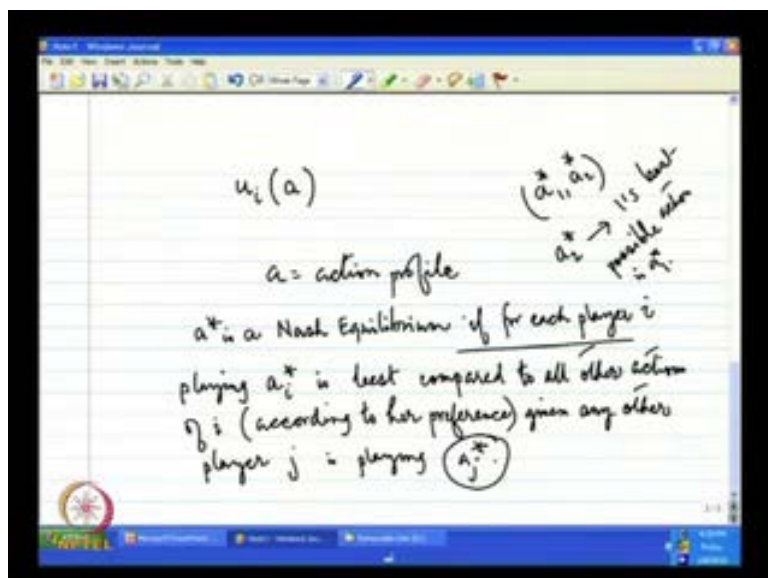 Note1 - Windows Journal
File Edit View Insert Actions Tools Help
u_i(a)
(a_1^*, a_2^*)
a_2^* → 1's best
possible action
is a_1^*.
a = action profile
a^* is a Nash Equilibrium if for each player i
playing a_i^* is best compared to all other action
of i (according to her preference) given any other
player j is playing a_j^*.
NPTEL